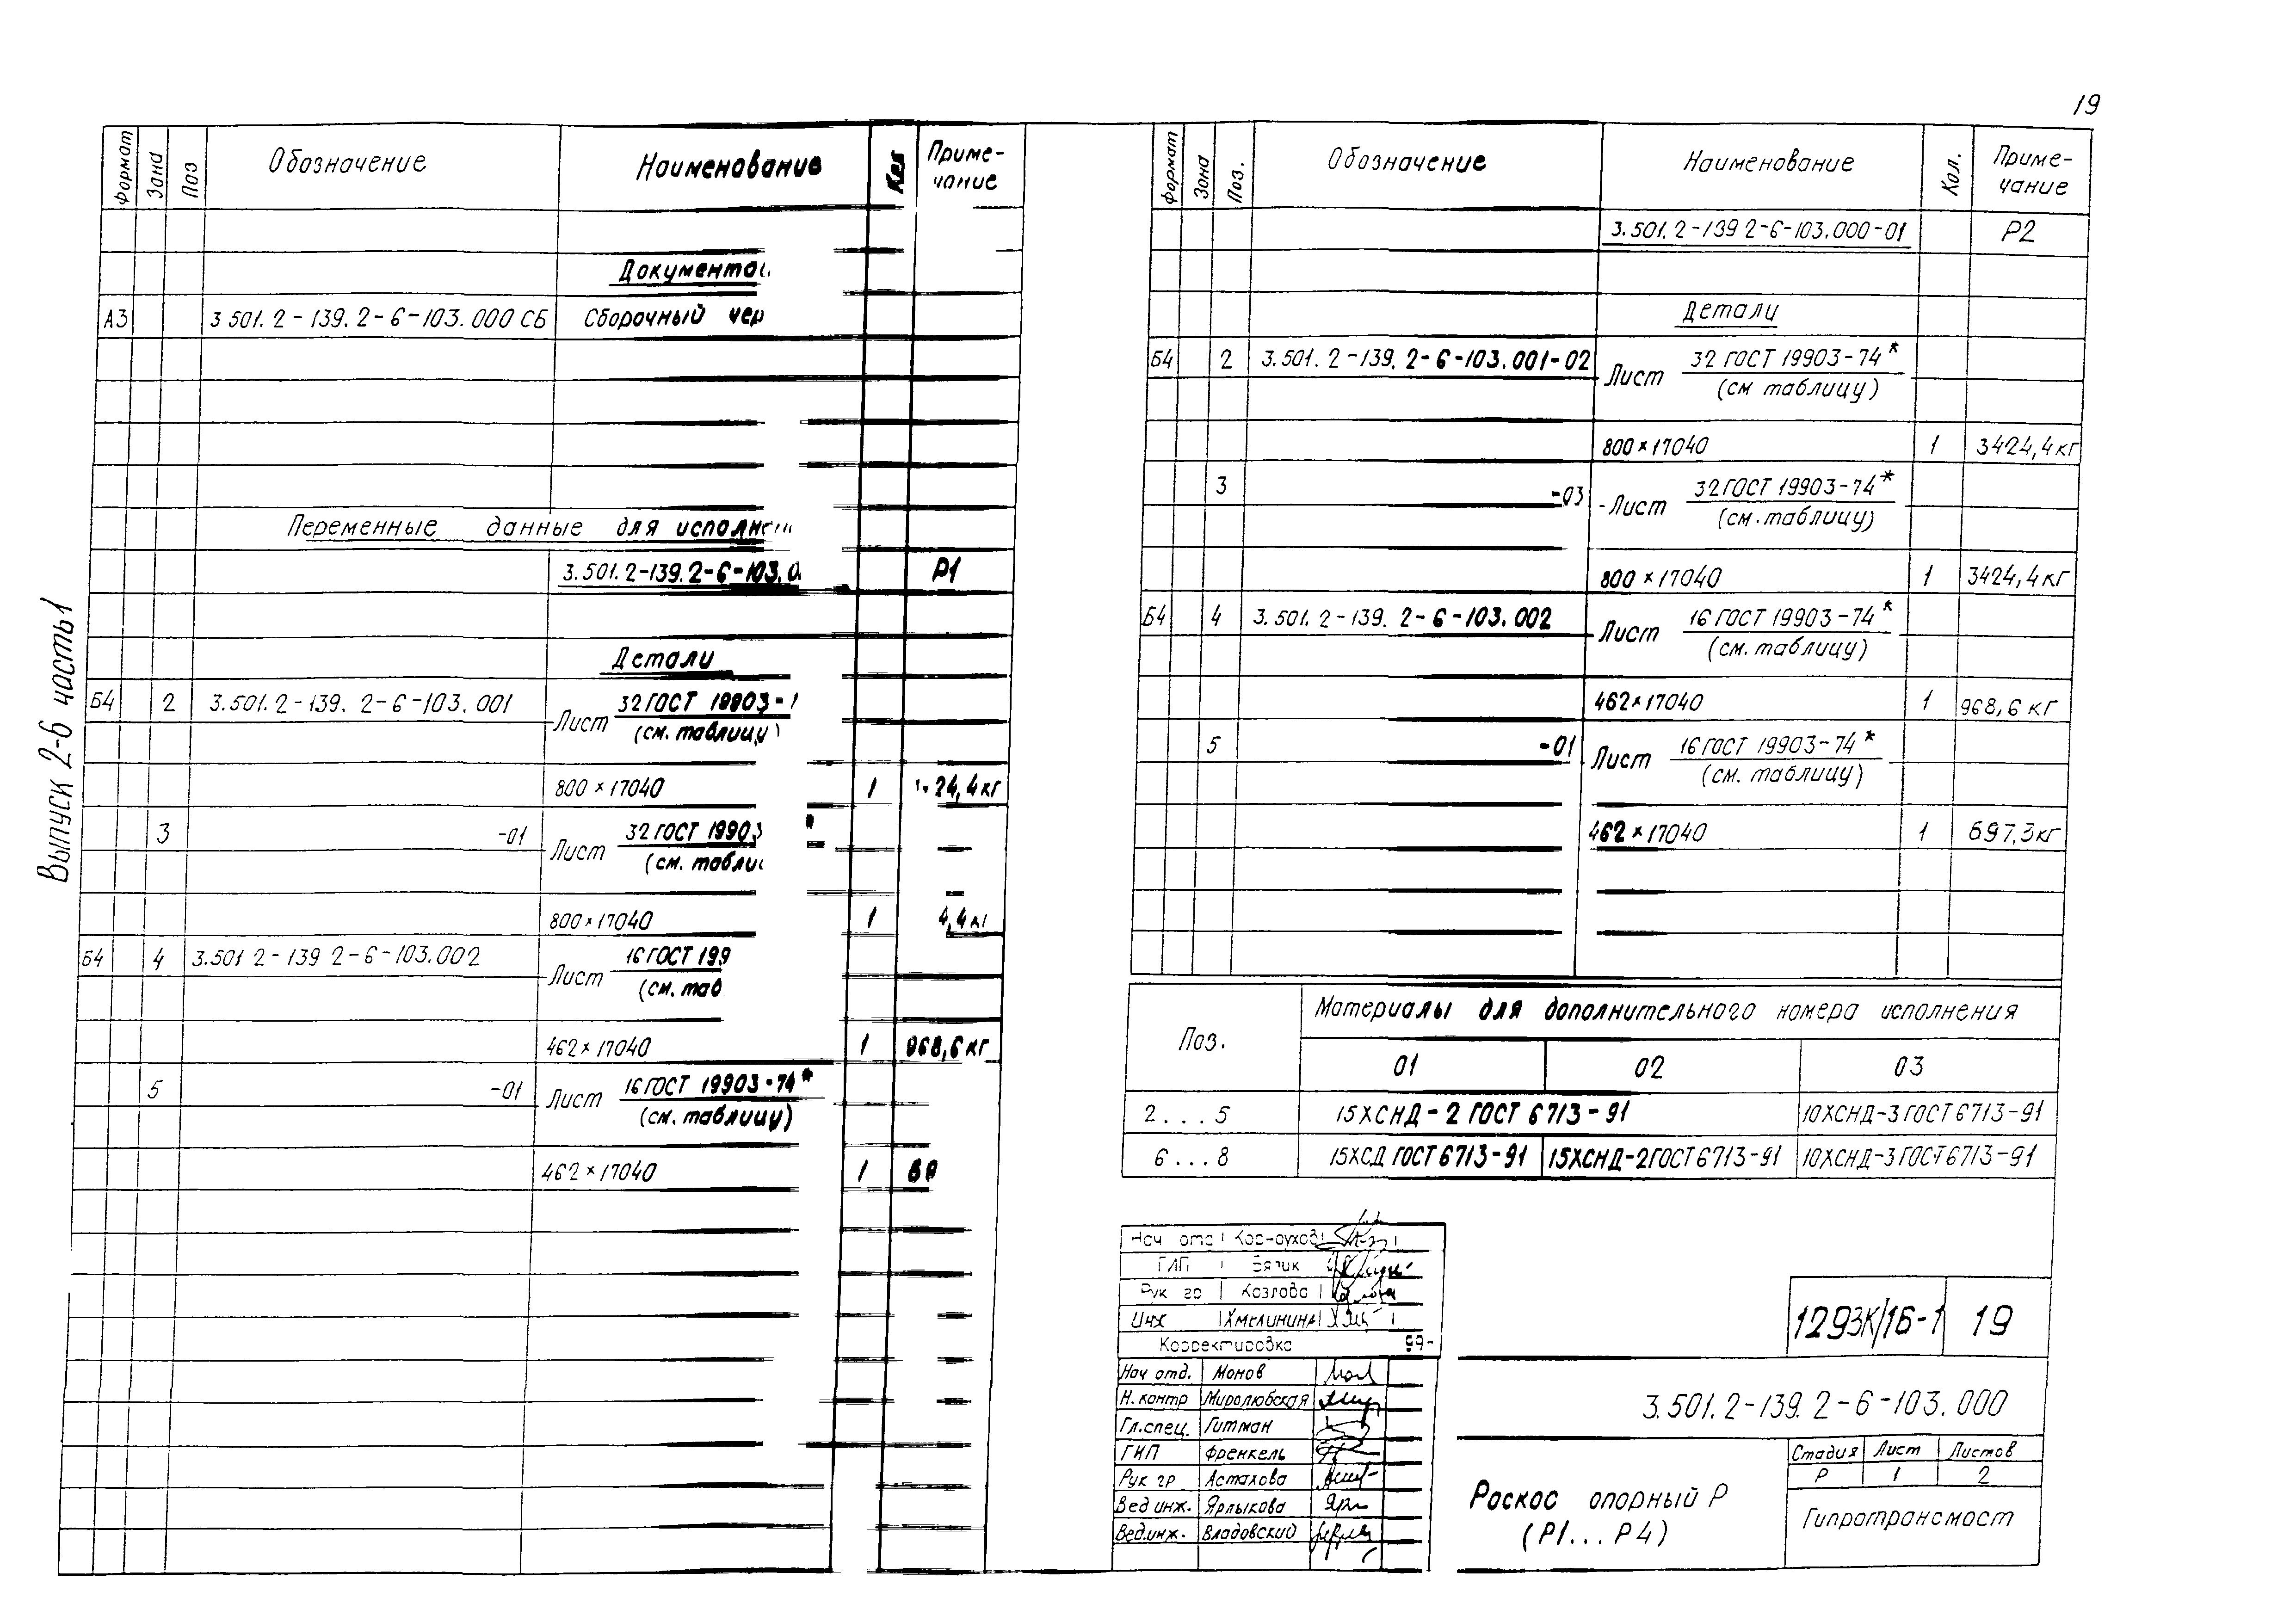 19
Выпуск 2-6 часть 1
Формат Зона Поз Обозначение Наименование Приме-
чание
А3 3 501. 2-139. 2-6-103. 000 СБ Сборочный
Переменные данные для
3.501. 2-139. 2-6-103. Р1
Детали
Б4 2 3.501. 2-139. 2-6-103. 001 Лист 32 ГОСТ 19903-
(см. таблицу)
800 × 17040 1 24,4 кг
3 -01 Лист 32 ГОСТ 19903
(см.
800 × 17040 1 4,4 кг
Б4 4 3.501 2-139 2-6-103.002 Лист 16 ГОСТ 199
(см. таб
462 × 17040 1 968,6 кг
5 -01 Лист 16 ГОСТ 19903-74*
(см. таблицу)
462 × 17040 1
Формат Зона Поз. Обозначение Наименование Кол. Приме-
чание
3.501. 2-139 2-6-103.000-01 Р2
Детали
Б4 2 3.501. 2-139. 2-6-103.001-02 Лист 32 ГОСТ 19903-74*
(см таблицу)
800 × 17040 1 3424,4 кг
3 -03 -Лист 32 ГОСТ 19903-74*
(см. таблицу)
800 × 17040 1 3424,4 кг
Б4 4 3.501. 2-139. 2-6-103.002 Лист 16 ГОСТ 19903-74*
(см. таблицу)
462 × 17040 1 968,6 кг
5 -01 Лист 16 ГОСТ 19903-74*
(см. таблицу)
462 × 17040 1 697,3 кг
Поз. Материалы для дополнительного номера исполнения
01 02 03
2...5 15ХСНД-2 ГОСТ 6713-91 10ХСНД-3 ГОСТ 6713-91
6...8 15ХСД ГОСТ 6713-91 15ХСНД-2 ГОСТ 6713-91 10ХСНД-3 ГОСТ 6713-91
Нач отд
ГИП
Рук гр Козлова
Инж Хмелинина
Корректировка 99-
Нач отд. Монов
Н. контр Миролюбская
Гл. спец. Гитман
ГИП Френкель
Рук гр Астахова
Вед инж. Ярлыкова
Вед.инж. Владовский
1293К/16-1 19
3.501. 2-139. 2-6-103. 000
Роскос опорный Р
(Р1...Р4)
Стадия Лист Листов
Р 1 2
Гипротрансмост